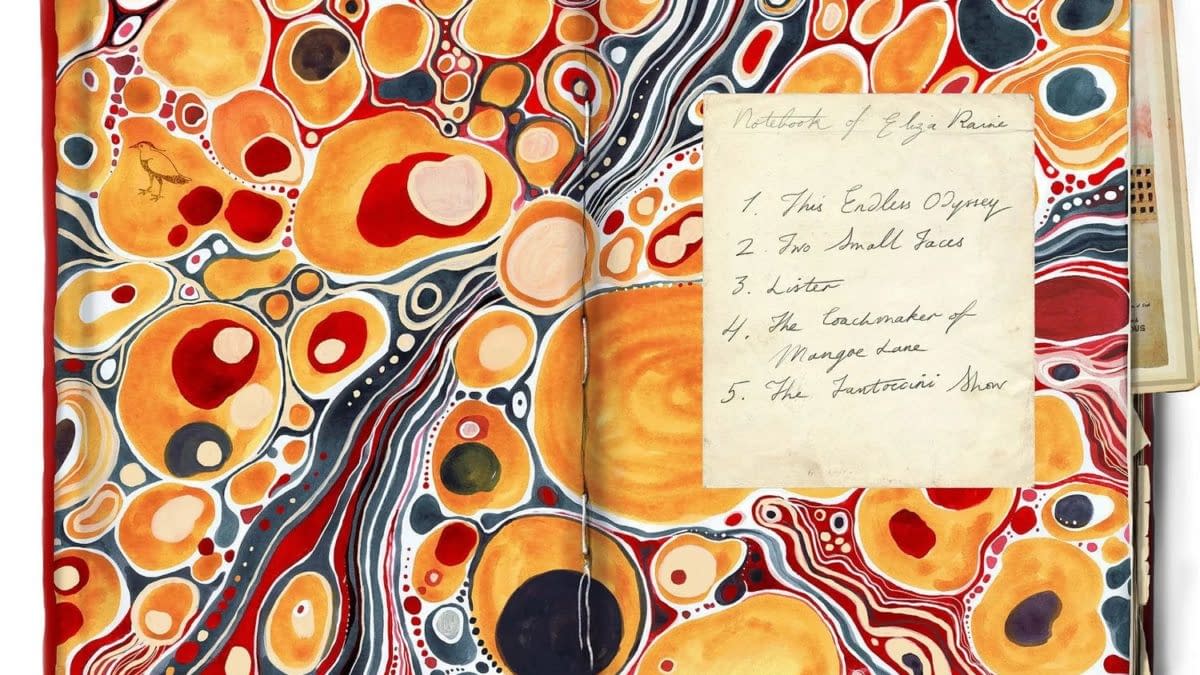 Notebook of Eliza Raine
1. This Endless Odyssey
2. Two Small Faces
3. Lister
4. The Coachmaker of
Mangoe Lane
5. The Fantoccini Show
OUS